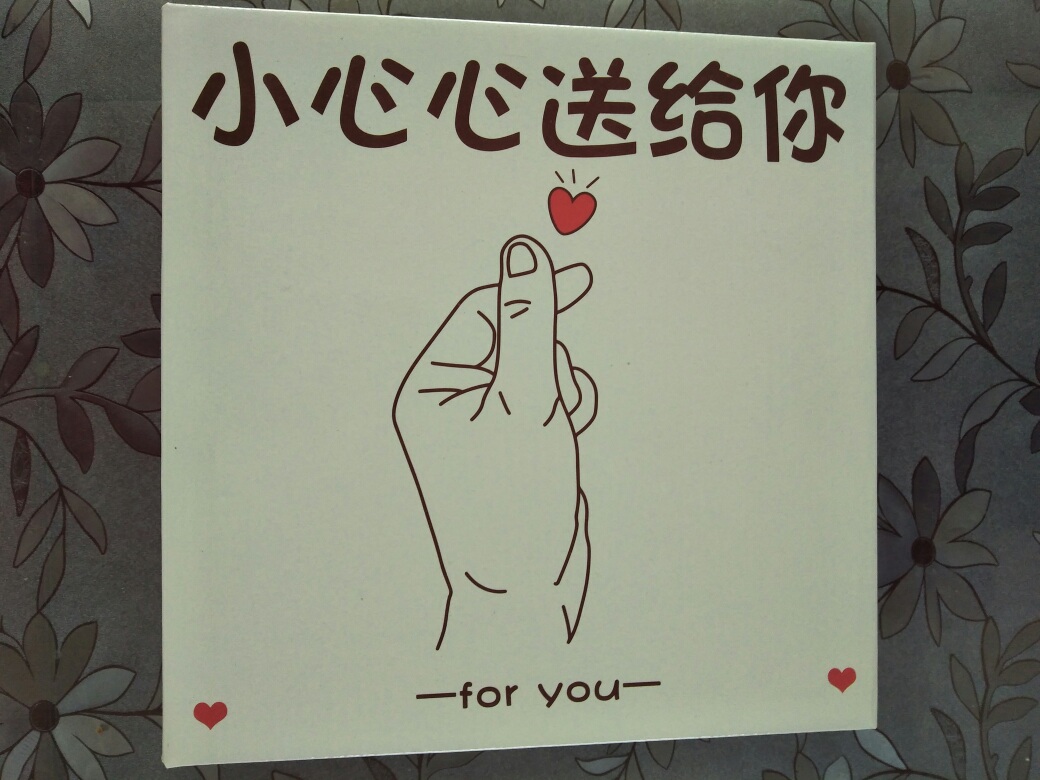 小心心送给你
—for you—